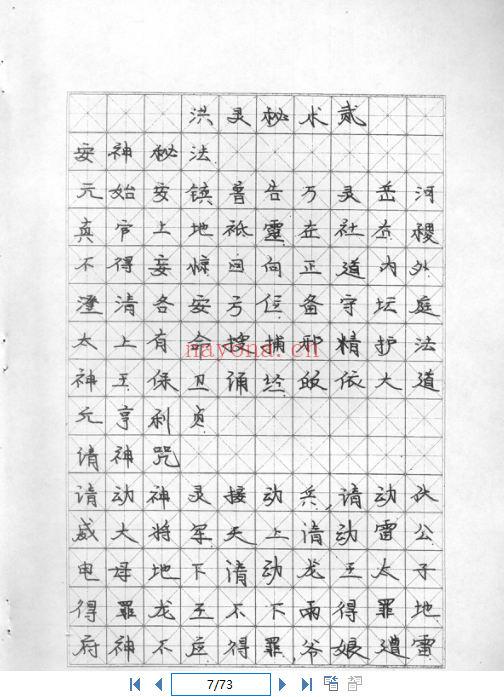 洪灵秘术贰
安神秘法
元始安镇普告万灵岳河
真官上地祗靈左社右稷
不得妄惊回向正道内外
澄清各安方位备守坛庭
太上有命搜捕邪精护法
神王保卫诵经皈依大道
元亨利贞
请神咒
请动神灵接动兵,请动队
威大将军天上请动雷公
电母地下请动龙王太子
得罪龙王不下雨得罪地
府神不应得罪,爷娘遭雷
nayona.cn
7/73